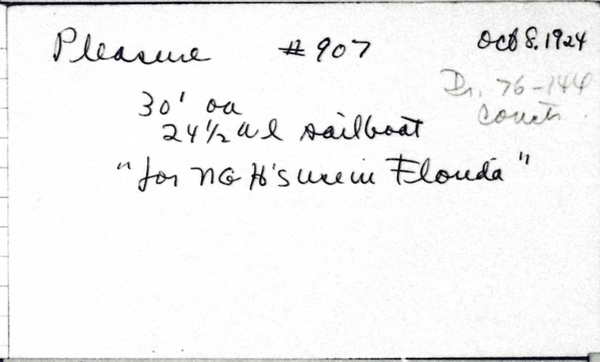 Pleasure #907 Oct 8. 1924
Dr. 76-144
Const.
30' oa
24 1/2 wl sailboat
"for NGH's use in Florida"